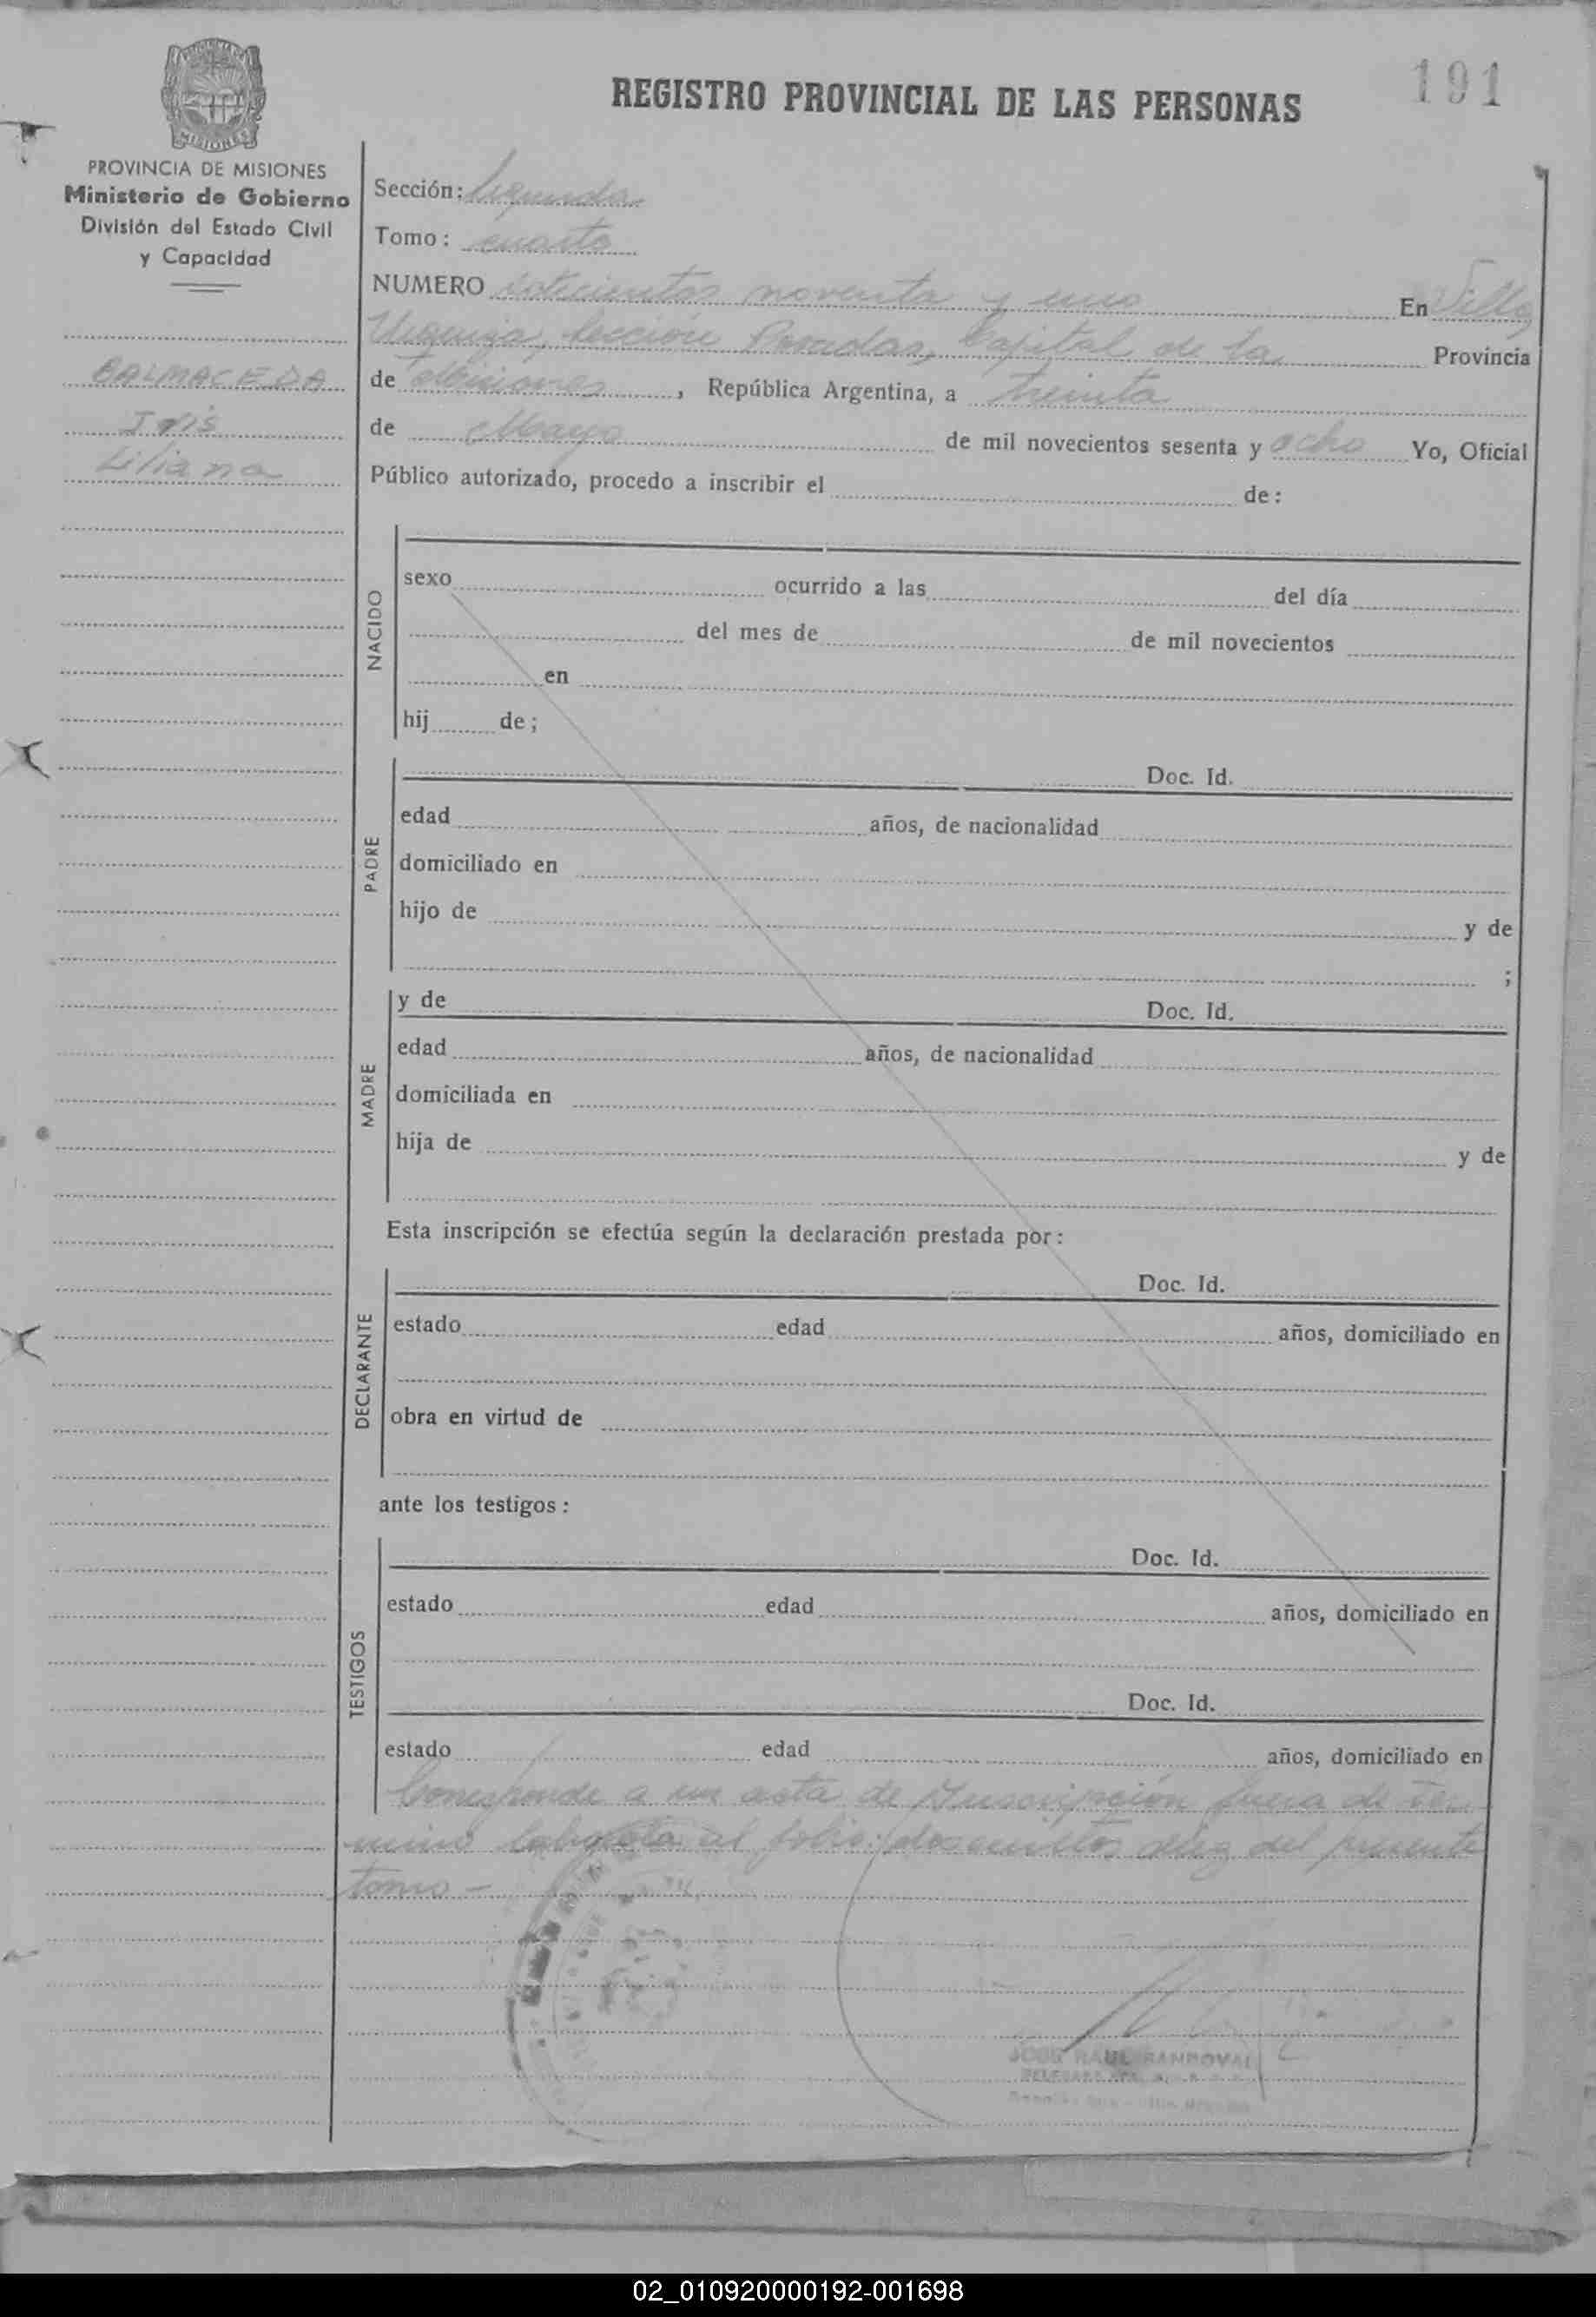 191
REGISTRO PROVINCIAL DE LAS PERSONAS
PROVINCIA DE MISIONES
Ministerio de Gobierno
División del Estado Civil
y Capacidad
BALMACEDA
Inés
Liliana
Sección: Segunda
Tomo: cuarto
NUMERO setecientos noventa y uno En Villa
Urquiza, Sección Posadas, Capital de la Provincia
de Misiones, República Argentina, a treinta
de Mayo de mil novecientos sesenta y ocho Yo, Oficial
Público autorizado, procedo a inscribir el de:
NACIDO
sexo ocurrido a las del día
del mes de de mil novecientos
en
hij de;
PADRE
Doc. Id.
edad años, de nacionalidad
domiciliado en
hijo de y de
;
MADRE
y de Doc. Id.
edad años, de nacionalidad
domiciliada en
hija de y de
Esta inscripción se efectúa según la declaración prestada por:
DECLARANTE
Doc. Id.
estado edad años, domiciliado en
obra en virtud de
ante los testigos:
TESTIGOS
Doc. Id.
estado edad años, domiciliado en
Doc. Id.
estado edad años, domiciliado en
Corresponde a un acta de Inscripción fuera de Tér
mino labrada al folio: doscientos diez del presente
tomo -
JOSE RAUL SANDOVAL
02_010920000192-001698